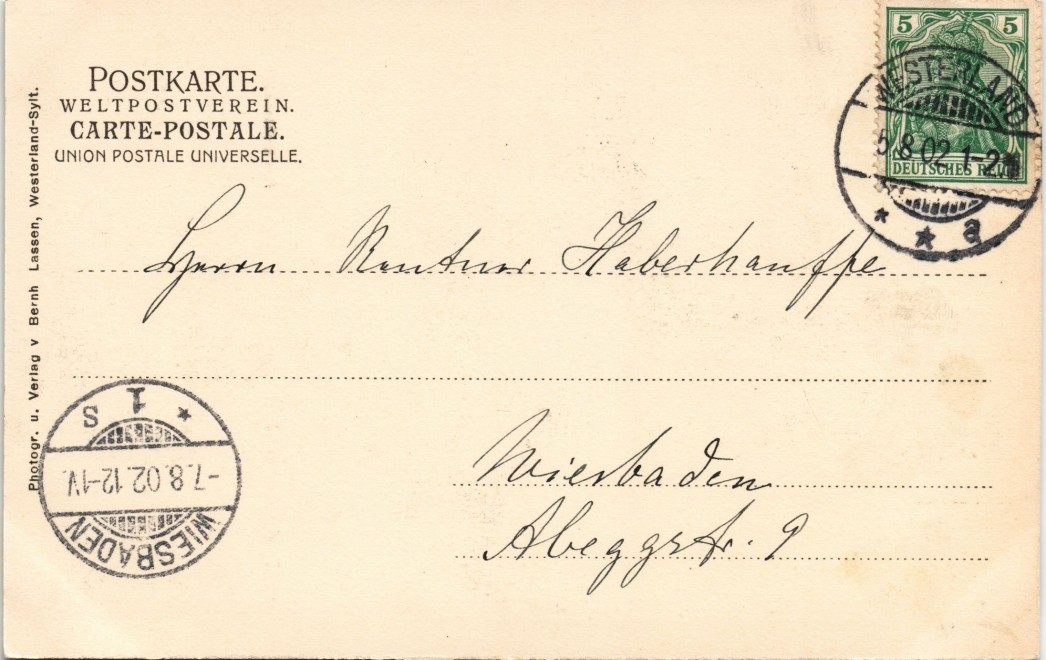 POSTKARTE.
WELTPOSTVEREIN.
CARTE-POSTALE.
UNION POSTALE UNIVERSELLE.
Photogr. u. Verlag v Bernh Lassen, Westerland-Sylt.
5 5
DEUTSCHES REICH
WESTERLAND
5.8.02 1-2N
* * a
Herrn Rentner Haberhauffe
Wiesbaden
Abeggstr. 9
WIESBADEN
-7.8.02.12-1V.
* 1 s